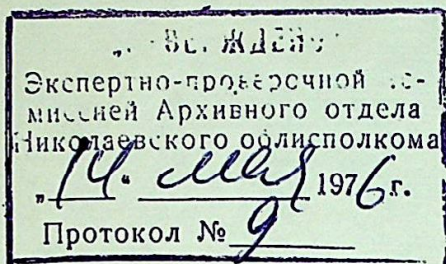 „УТВЕРЖДЕНО"
Экспертно-проверочной ко-
миссией Архивного отдела
Николаевского облисполкома
„14" мая 1976г.
Протокол № 9